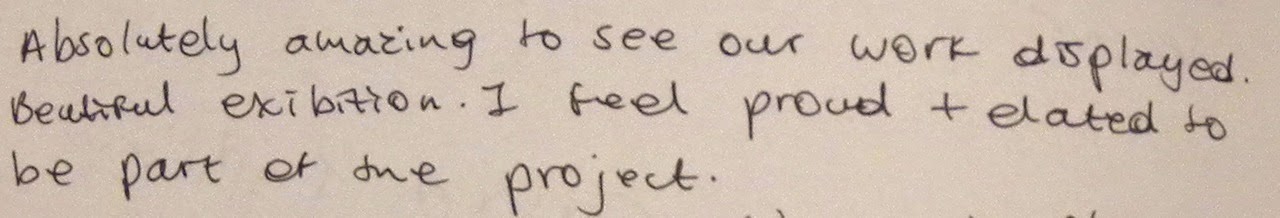 Absolutely amazing to see our work displayed.
Beatiful exibition. I feel proud + elated to
be part of the project.